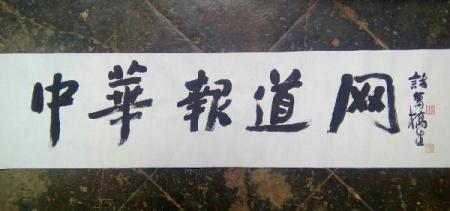 中華報道网